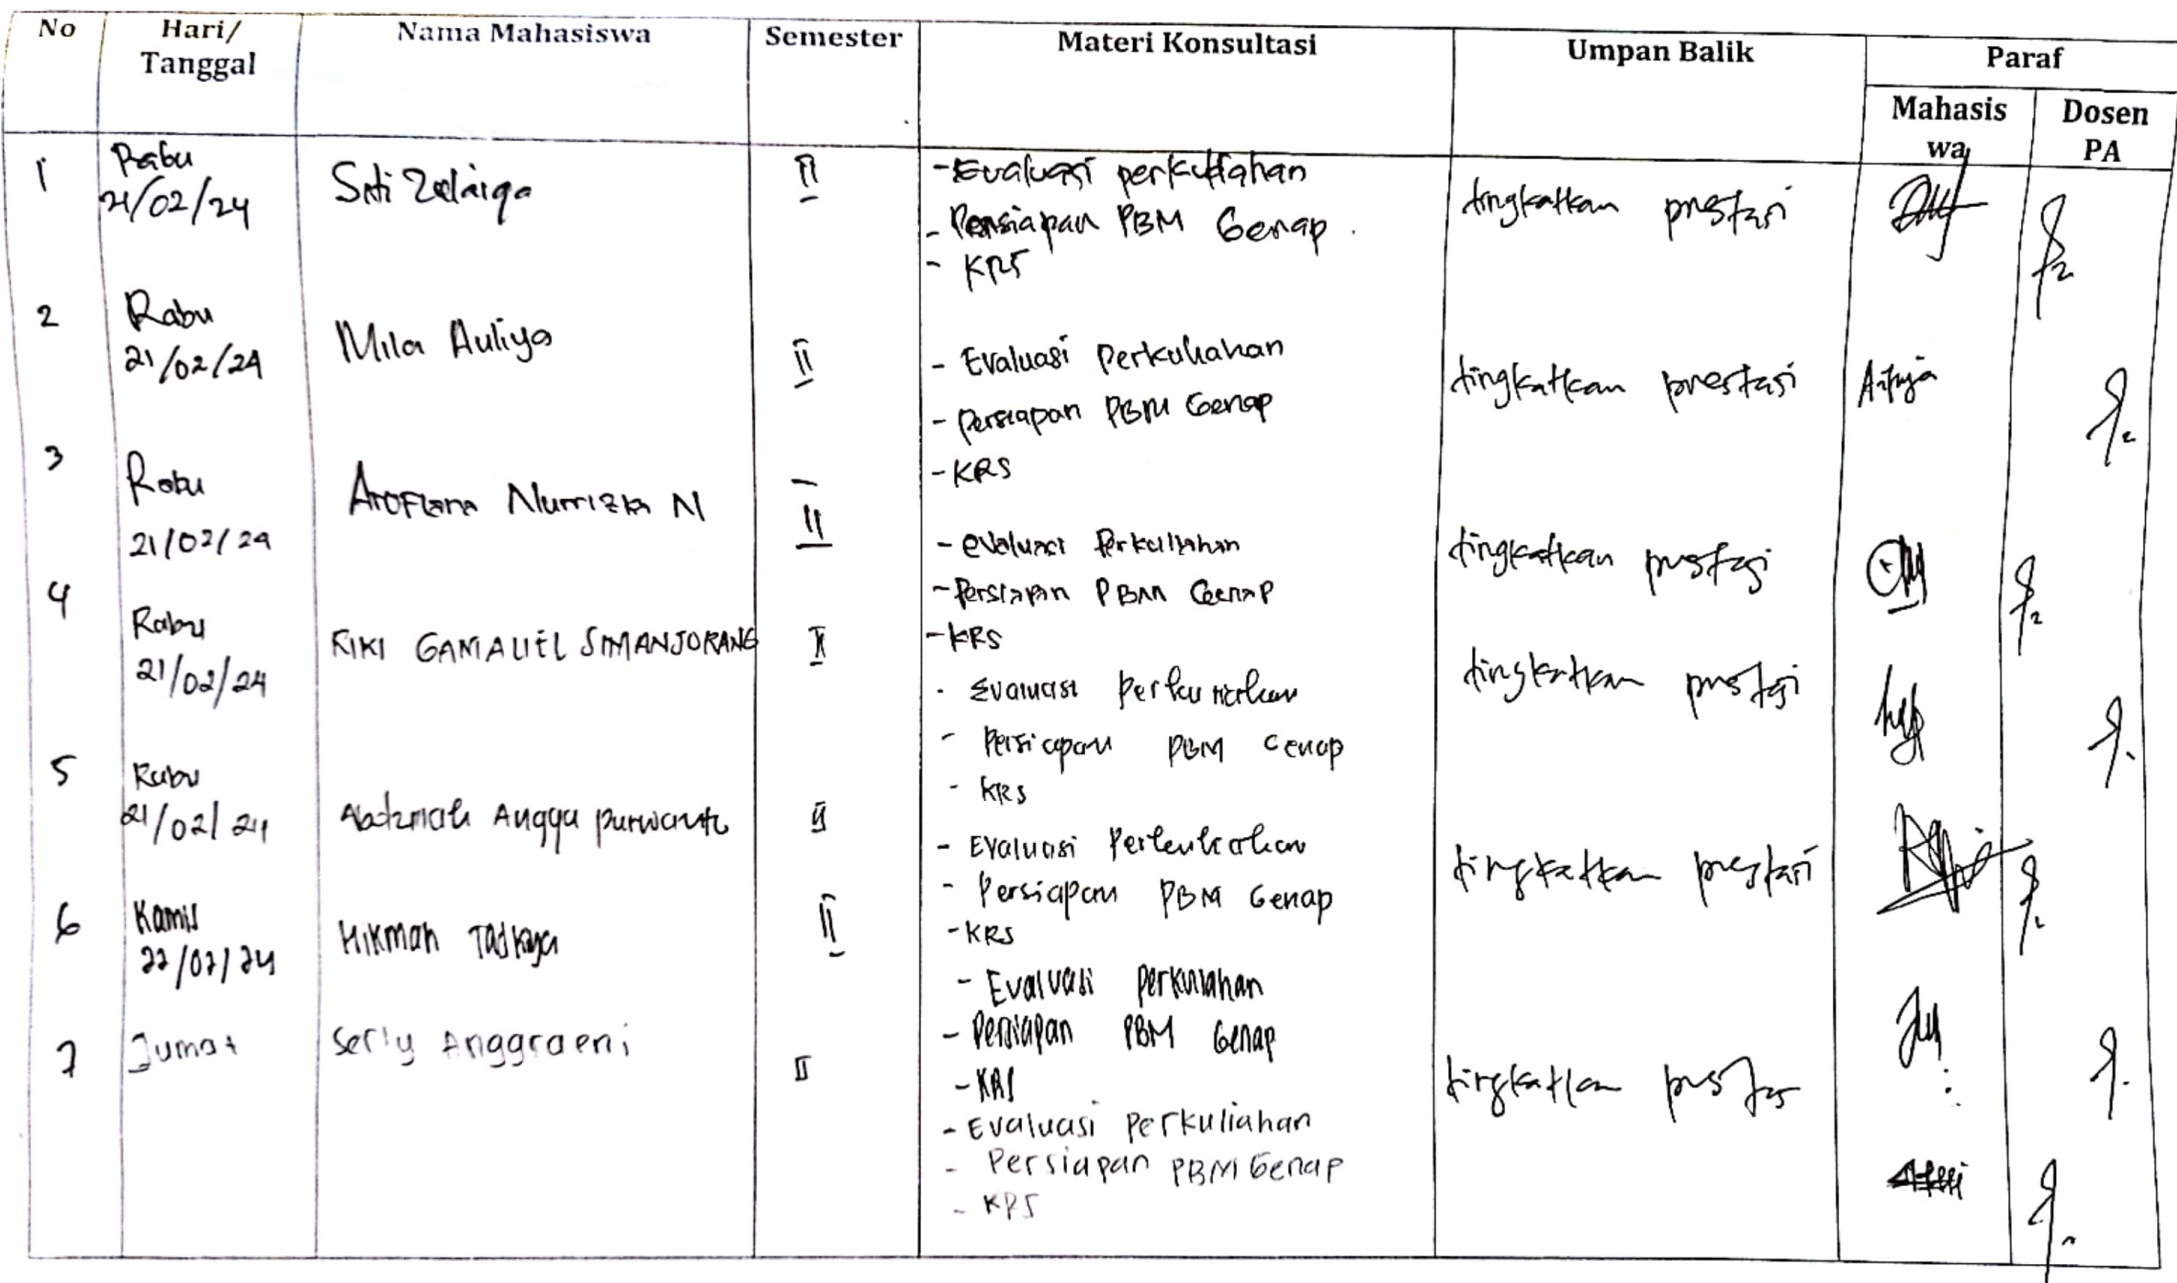 No Hari/ Tanggal Nama Mahasiswa Semester Materi Konsultasi Umpan Balik Paraf
Mahasis wa Dosen PA
1 Rabu 21/02/24 Siti II
- Evaluasi perkuliahan
- Persiapan PBM Genap
- KRS
tingkatkan prestasi
2 Rabu 21/02/24 Mila Auliya II
- Evaluasi Perkuliahan
- Persiapan PBM Genap
- KRS
tingkatkan prestasi
3 Rabu 21/02/24 Nurrizka N II
- evaluasi Perkuliahan
- Persiapan PBM Genap
- KRS
tingkatkan prestasi
4 Rabu 21/02/24 KIKI GAMALIEL SIMANJORANG II
- Evaluasi Perkuliahan
- Persiapan PBM Genap
- KRS
tingkatkan prestasi
5 Rabu 21/02/24 Angga purwanto II
- Evaluasi Perkuliahan
- Persiapan PBM Genap
- KRS
tingkatkan prestasi
6 Kamis 22/02/24 Hikmah II
- Evaluasi perkuliahan
- Persiapan PBM Genap
- KRS
7 Jumat Serly Anggraeni II
- Evaluasi Perkuliahan
- Persiapan PBM Genap
- KRS
tingkatkan